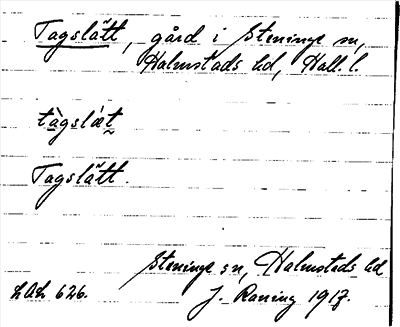 Tagslätt, gård i Steninge sn,
Halmstads hd, Hall. l.
tàgslæ̀t
Tagslätt.
Steninge sn, Halmstads hd
LAL 626. J. Roning 1917.